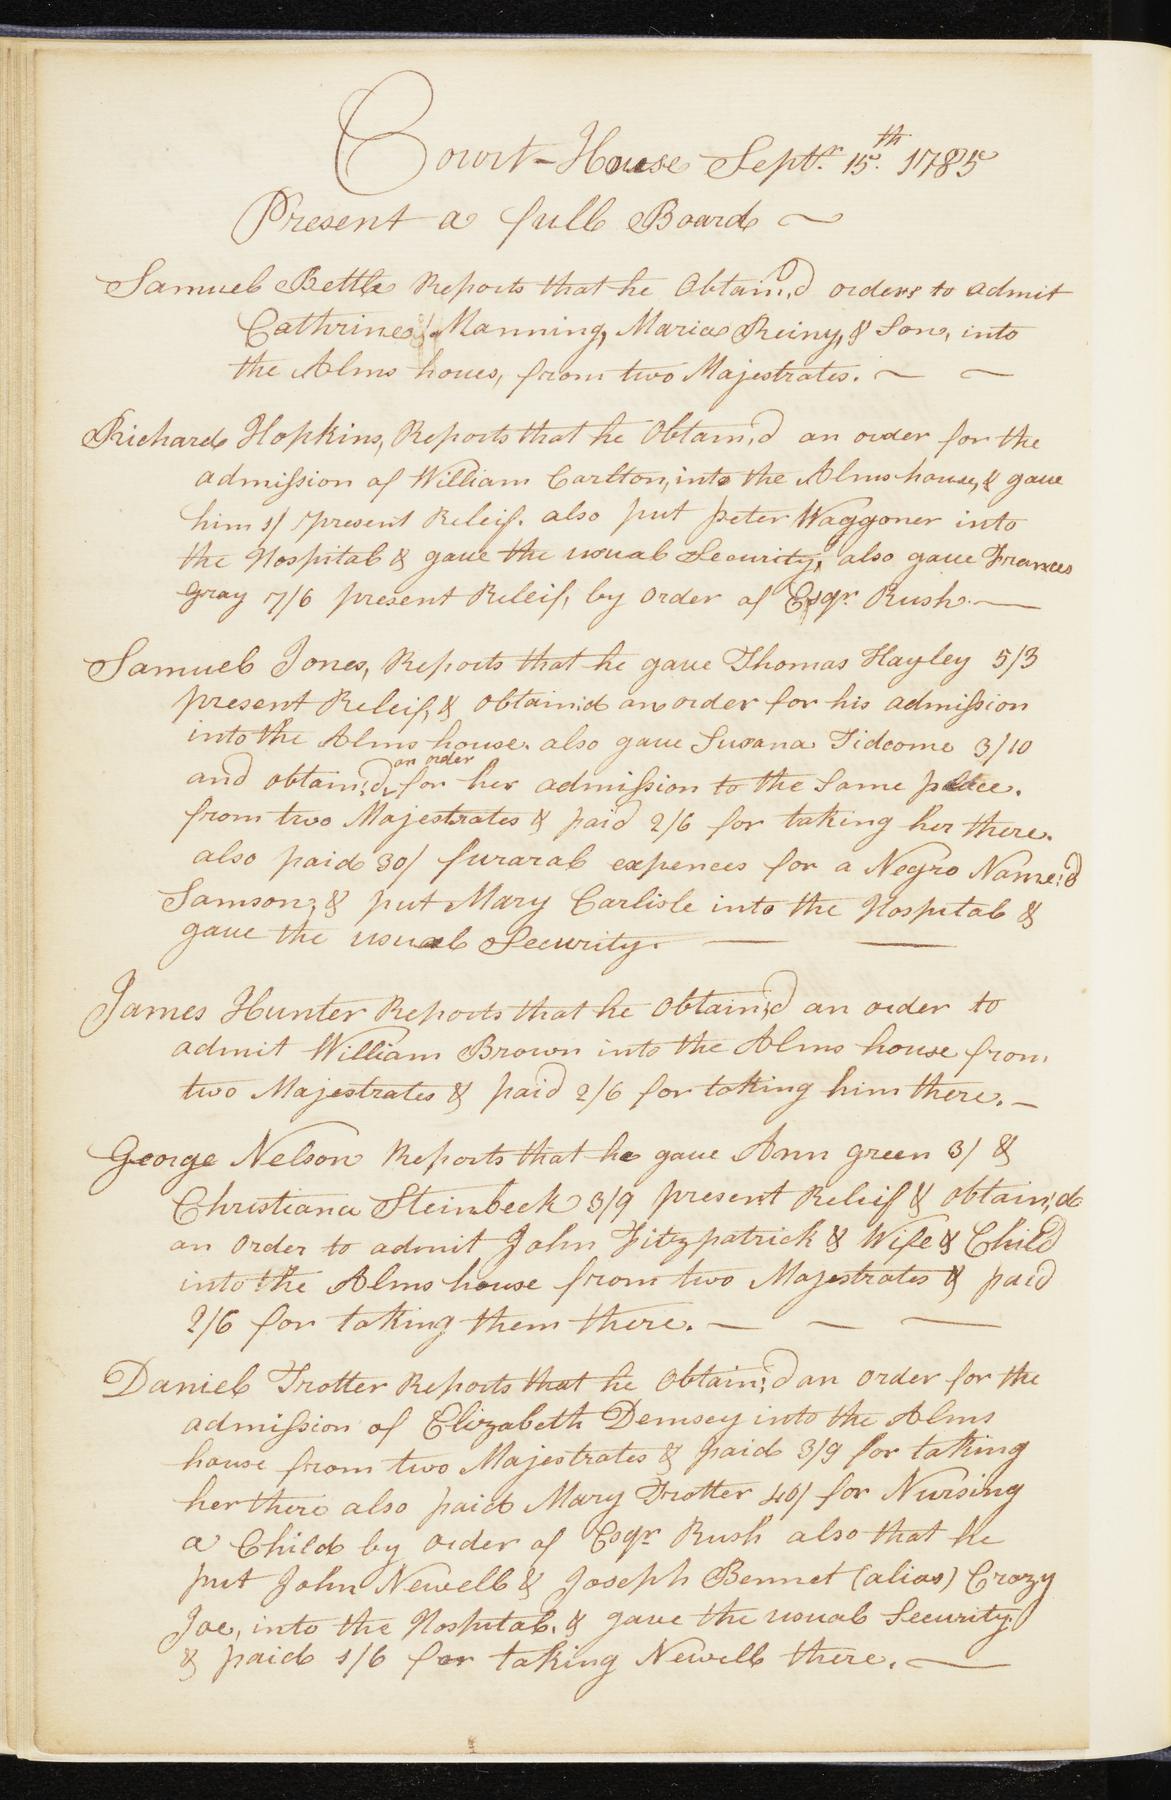 Court-House Septr. 15th. 1785
Present a full Board
Samuel Bettle Reports that he Obtain'd orders to admit
Cathrine Manning, Maria Reiny, & Son, into
the Alms houes, from two Majestrates.
Richard Hopkins, Reports that he Obtain'd an order for the
admission of William Carlton, into the Alms house, & gave
him 1/ present Releif. also put peter Waggoner into
the Hospital & gave the usual Security, also gave Frances
Gray 7/6 present Releif, by order of Esqr. Rush.
Samuel Jones, Reports that he gave Thomas Hayley 5/3
present Releif, & obtain'd an order for his admission
into the Alms house. also gave Susana Tidcome 3/10
and obtain'd an order for her admission to the Same palce.
from two Majestrates & paid 2/6 for taking her there.
also paid 30/ furaral expences for a Negro Name'd
Samson; & put Mary Carlisle into the Hospital &
gave the usual Security.
James Hunter Reports that he Obtain'd an order to
admit William Brown into the Alms house from
two Majestrates & paid 2/6 for taking him there.
George Nelson Reports that he gave Ann green 3/ &
Christiana Steinbeck 3/9 present Releif & obtain'd
an Order to admit John Fitzpatrick & Wife & Child
into the Alms house from two Majestrates & paid
2/6 for taking them there.
Daniel Trotter Reports that he Obtain'd an Order for the
admission of Elizabeth Demsey into the Alms
house from two Majestrates & paid 3/9 for taking
her there also paid Mary Trotter 40/ for Nursing
a Child by order of Esqr Rush also that he
put John Newell & Joseph Bennet (alias) Crazy
Joe, into the Hospital. & gave the usual Security
& paid 1/6 for taking Newell there.